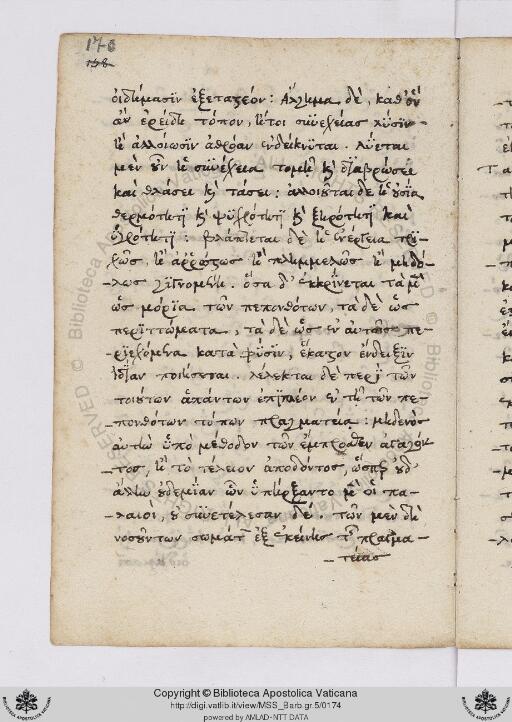 170
158
οἰδήμασιν ἐξεταστέον: ἄλγημα δὲ, καθ' ὃν
ἂν ἐρείδῃ τόπον, ἤτοι συνεχείας λύσιν
ἢ ἀλλοίωσιν ἀθρόαν ἐνδείκνυται. λύεται
μὲν οὖν ἡ συνέχεια τομῇ καὶ διαβρώσει
καὶ θλάσει καὶ τάσει: ἀλλοιοῦται δὲ ἡ οὐσία
θερμότητι καὶ ψυχρότητι καὶ ξηρότητι καὶ
ὑγρότητι: βλάπτεται δὲ ἡ ἐνέργεια τρι-
χῶς, ἢ ἀρρώστως ἢ πλημμελῶς ἢ μηδ'
-λως γιγνομένη. ὅσα δ' ἐκκρίνεται τὰ μὲν
ὡς μόρια τῶν πεπονθότων, τὰ δὲ ὡς
περιττώματα, τὰ δὲ ὡς ἐν αὐτοῖς πε-
-ριεχόμενα κατὰ φύσιν, ἕκαστον ἔνδειξιν
ἰδίαν ποιήσεται. λέλεκται δὲ περὶ τῶν
τοιούτων ἁπάντων ἐπιπλέον ἐν τῇ τῶν πε-
πονθότων τόπων πραγματεία: μηδενὸς
αὐτῶν ὑπὸ μέθοδον τῶν ἔμπροσθεν ἀγαγόν
τος, ἢ τὸ τέλειον ἀποδόντος, ὥσπερ οὐδ'
ἄλλην οὐδεμίαν ὧν ὑπήρξαντο μὲν οἱ πα-
-λαιοὶ, οὐ συνετέλεσαν δέ τῶν μὲν δὴ
νοσούντων σωμάτων ἐξ ἐκείνης τῆς πραγμα-
-τείας
Copyright © Biblioteca Apostolica Vaticana
http://digi.vatlib.it/view/MSS_Barb.gr.5/0174
powered by AMLAD-NTT DATA